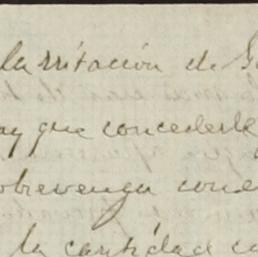 la irritación de
que concederle
sobrevenga con
la cantidad